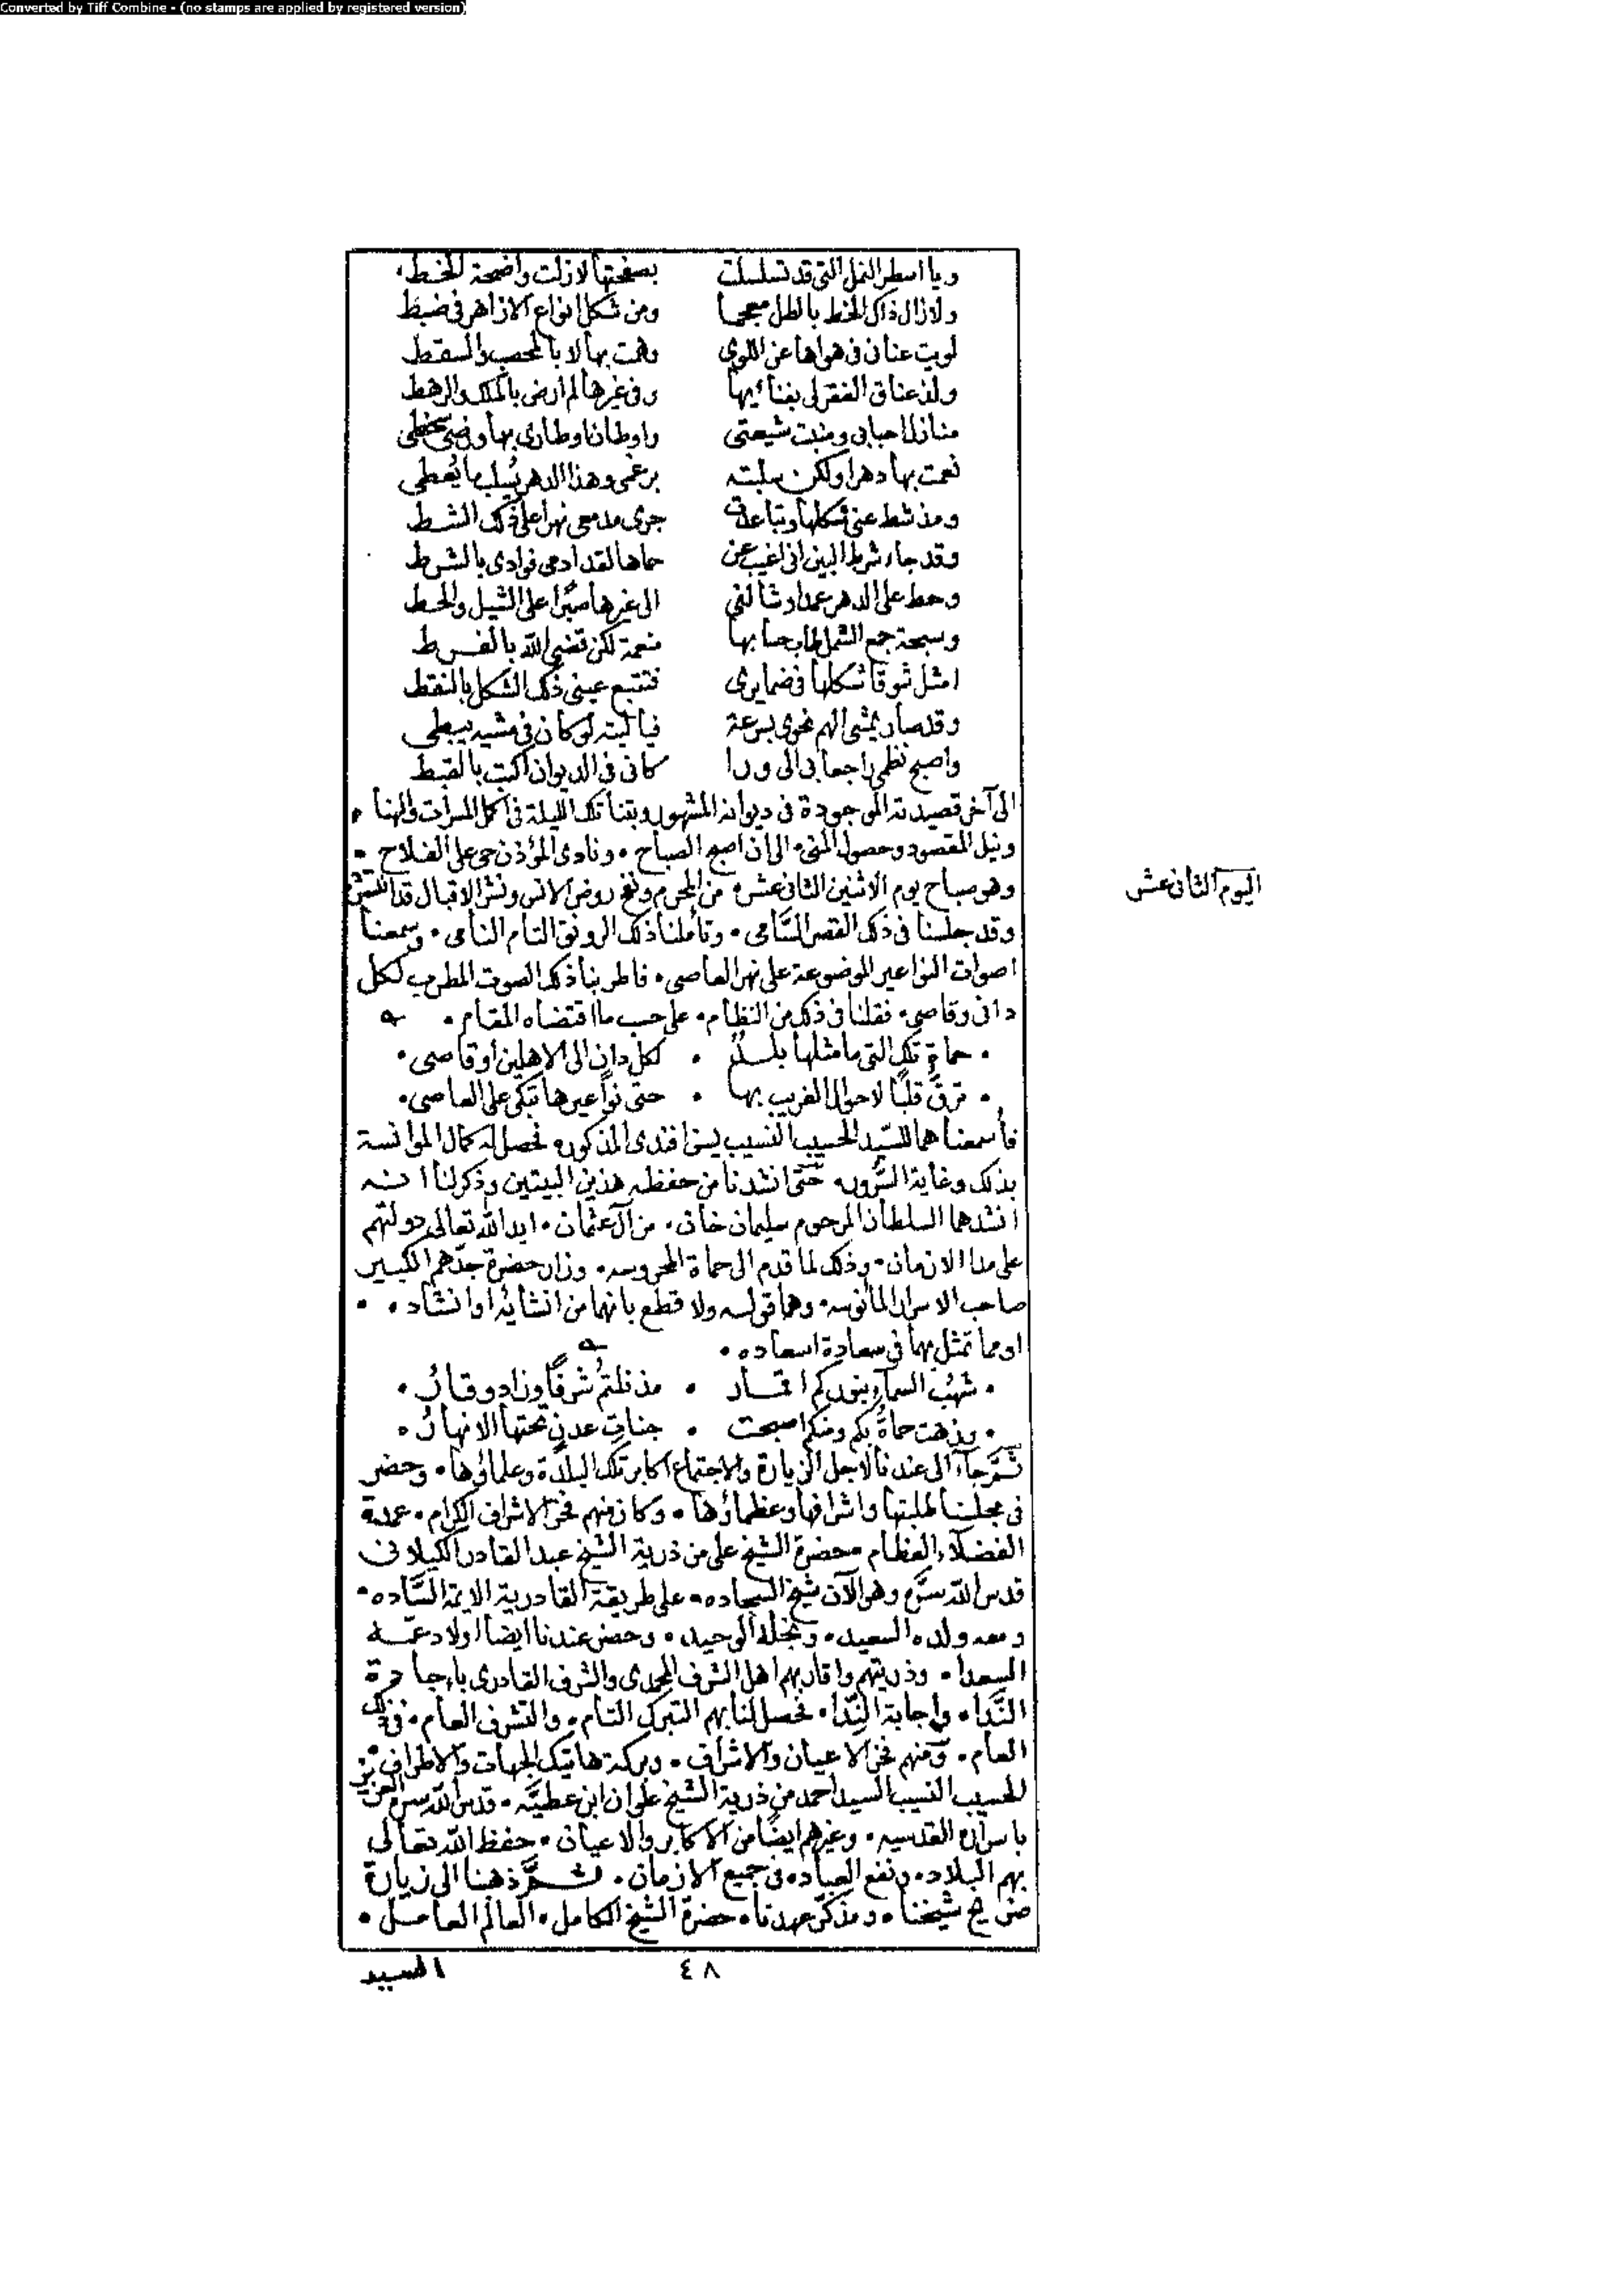 Converted by Tiff Combine - (no stamps are applied by registered version)
ويا اسطر النمل التى قد تسلسلت بصفحتها لازلت واضحة الخط
ولازال ذاك الخط بالطل معجما ومن شكل انواع الازاهر فى ضبط
لويت عنانى فى هواها عن اللوى وهمت بها لا بالمحصب والسقط
ولذ عناق الفقر لى بفنائها وفى غيرها لم ارض بالملك والرهط
منازل احبابى ومنبت شيعتى واوطان اوطارى بها ورضى سخطى
نعمت بها دهرا ولكن سلبته برغمى وهذا الدهر يسلب ما يُعطى
ومذ شط عنى شكلها وتباعدت جرى مدمعى نهرا على ذلك الشط
وقد جاء شرط البين انى اغيب عن حماها لقد ادمى فوادى بالشرط
وحط على الدهر عمدا وشالنى الى غيرها صبرا على الشيل والحط
وسبحة جمع الشمل طاب حسابها منعمة لكن تقضى الله بالفرط
امثل شوقا شكلها فى ضمايرى فتتبع عينى ذلك الشكل بالنقط
وقد صار يمشى الهم نحوى بسرعة فيا ليته لو كان فى مشيه يبطى
واصبح نظمى راجعا بى الى ورا كانى فى الديوان اكتب بالقبط
الى آخر قصيدته الموجودة فى ديوانه المشهور وبتنا تلك الليلة فى اكمل المسرات والهنا ۰
ونيل المقصود وحصول المنى ۰ الى ان اصبح الصباح ۰ ونادى المؤذن حى على الفلاح ۰
اليوم الثانى عشر
وهو صباح يوم الاثنين الثانى عشر من المحرم ونفح روض الانس ونشر الاقبال قد انتشر
وقد جلسنا فى ذلك القصر السَّامى ۰ وتاملنا ذلك الرونق التام النامى ۰ وسمعنا
اصوات النواعير الموضوعة على نهر العاصى ۰ فاطربنا ذلك الصوت المطرب لكل
دانى وقاصى ۰ فقلنا فى ذلك من النظام ۰ على حسب ما اقتضاه المقام ۰
۰ حماة تلك التى ما مثلها بلدٌ ۰ لكل دان الى الاهلين او قاصى ۰
۰ ترقّ قلبًا لاحوال الغريب بها ۰ حتى نواعيرها تبكى على العاصى ۰
فأسمعناهما للسّيد الحسيب النسيب يسن افندى المذكور ۰ فحصل له كمال الموانسة
بذلك وغاية السُّرور ۰ حتّى انشدنا من حفظه هذين البيتين وذكر لنا انه
انشدهما السلطان المرحوم سليمان خان ۰ من آل عثمان ۰ ايد الله تعالى دولتهم
على مدا الازمان ۰ وذلك لما قدم الى حماة المحروسه ۰ وزار حضرة جدّهم الكبير
صاحب الاسرار المانوسه ۰ وهما قوله ولا قطع بانهما من انشايه او انشاده ۰
او مما تمثل بهما فى سعادة اسعاده ۰
۰ شهُب السمآء بنوركم اقمار ۰ مذ نلتمُ شرفًا وزاد وقارُ ۰
۰ وزهت حماةُ بكم ومنكم اصبحت ۰ جنات عدنٍ تحتها الانهارُ ۰
ثمَّ جآء الى عندنا لاجل الزيارة والاجتماع اكابر تلك البلدة وعلماؤها ۰ وحضر
فى مجلسنا طلبتها واشرافها وعظماؤها ۰ وكان منهم فخر الاشراف الكرام ۰ عمدة
الفضلآء العظام ۰ حضرة الشيخ على من ذرية الشيخ عبد القادر الكيلانى
قدس الله سرّه وهو الآن شيخ السجاده ۰ على طريقة القادرية الايمة السَّاده ۰
ومعه ولده السعيد ۰ ونجله الوحيد ۰ وحضر عندنا ايضا اولاد عمّه
السعدا ۰ وذريتهم واقاربهم اهل الشرف المحمدى والشرف القادرى
النَّدا ۰ واجابة النِّدا ۰ فحصل لنا بهم التبرك التام ۰ والتشرف العام ۰ فى ذلك
العام ۰ ومنهم فخر الاعيان والاشراف ۰ وبركة هاتيك الجهات والاطراف
الحسيب النسيب السيد احمد من ذرية الشيخ علوان ابن عطيَّه ۰ قدس الله سره العزيز
باسراره القدسيه ۰ وغيرهم ايضًا من الاكابر والاعيان ۰ حفظ الله تعالى
بهم البلاد ۰ ونفع العباد ۰ فى جميع الازمان ۰ ثمَّ ذهبنا الى زيارة
ضريح شيخنا ۰ ومذكّر عهدنا ۰ حضرة الشيخ الكامل ۰ العالم العامل ۰
٤٨
السيد